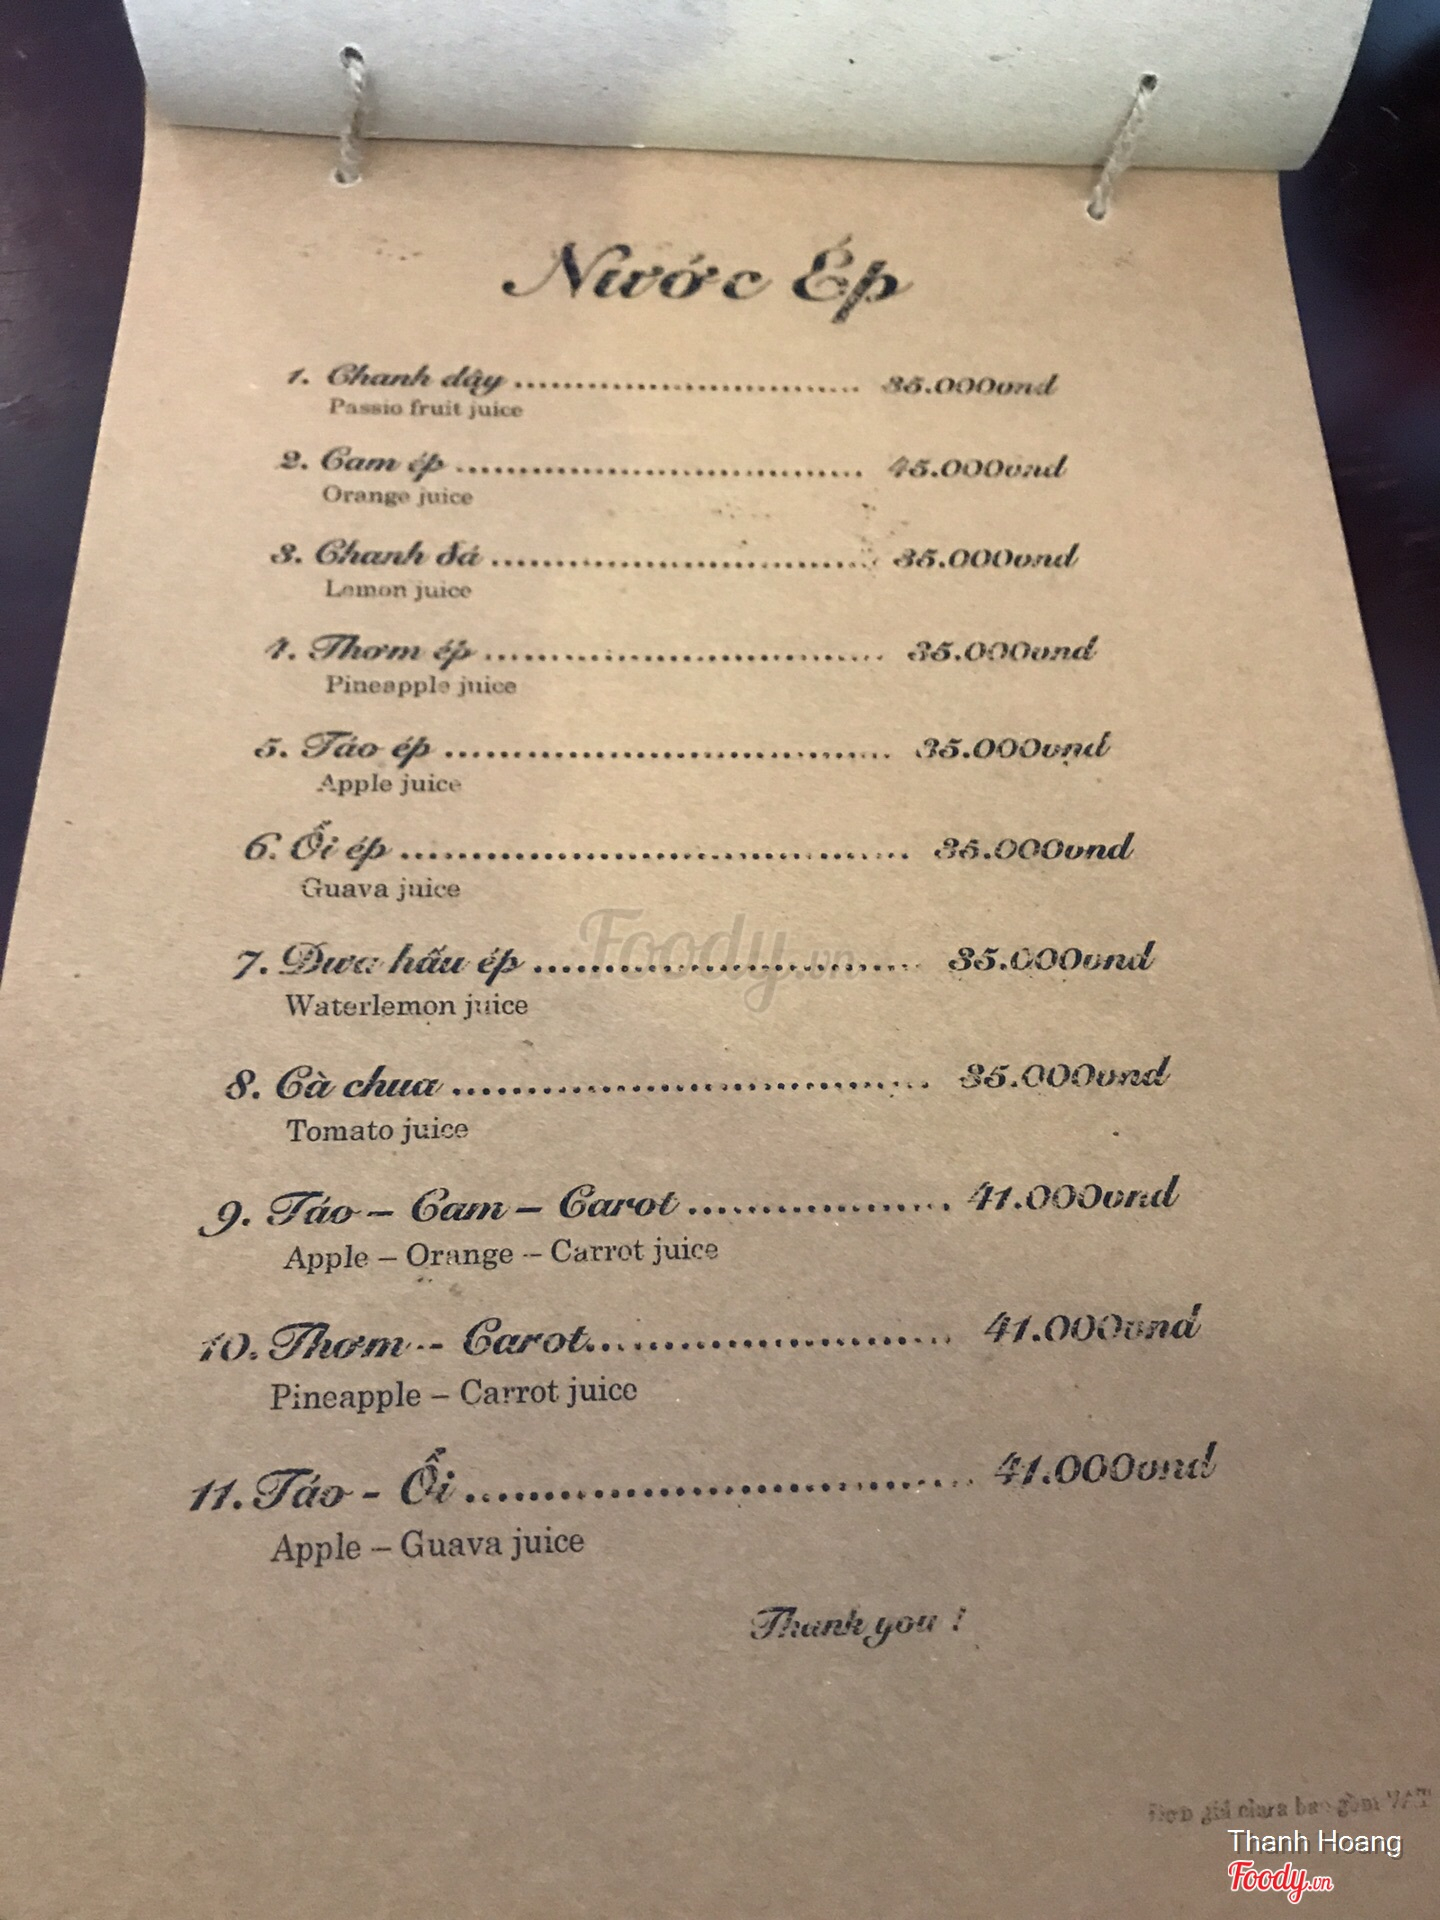 Nước Ép
1. Chanh dây ................................ 35.000vnd
Passio fruit juice
2. Cam ép ................................ 45.000vnd
Orange juice
3. Chanh đá ................................ 35.000vnd
Lemon juice
4. Thơm ép ................................ 35.000vnd
Pineapple juice
5. Táo ép ................................ 35.000vnd
Apple juice
6. Ổi ép ................................ 35.000vnd
Guava juice
7. Dưa hấu ép ................................ 35.000vnd
Waterlemon juice
8. Cà chua ................................ 35.000vnd
Tomato juice
9. Táo – Cam – Carot .................. 41.000vnd
Apple – Orange – Carrot juice
10. Thơm - Carot.......................... 41.000vnd
Pineapple – Carrot juice
11. Táo - Ổi ................................ 41.000vnd
Apple – Guava juice
Thank you !
giá chưa bao gồm VAT
Thanh Hoang
Foody.vn
Foody.vn